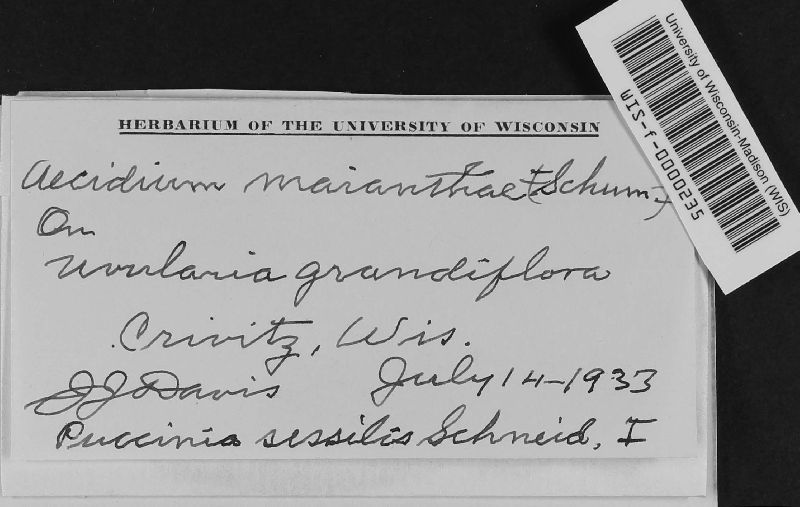 HERBARIUM OF THE UNIVERSITY OF WISCONSIN
Aecidium maianthae (Schum.)
On
Uvularia grandiflora
Crivitz, Wis.
JJ Davis July 14-1933
Puccinia sessilis Schneid, I
University of Wisconsin-Madison (WIS)
WIS-f-0000235